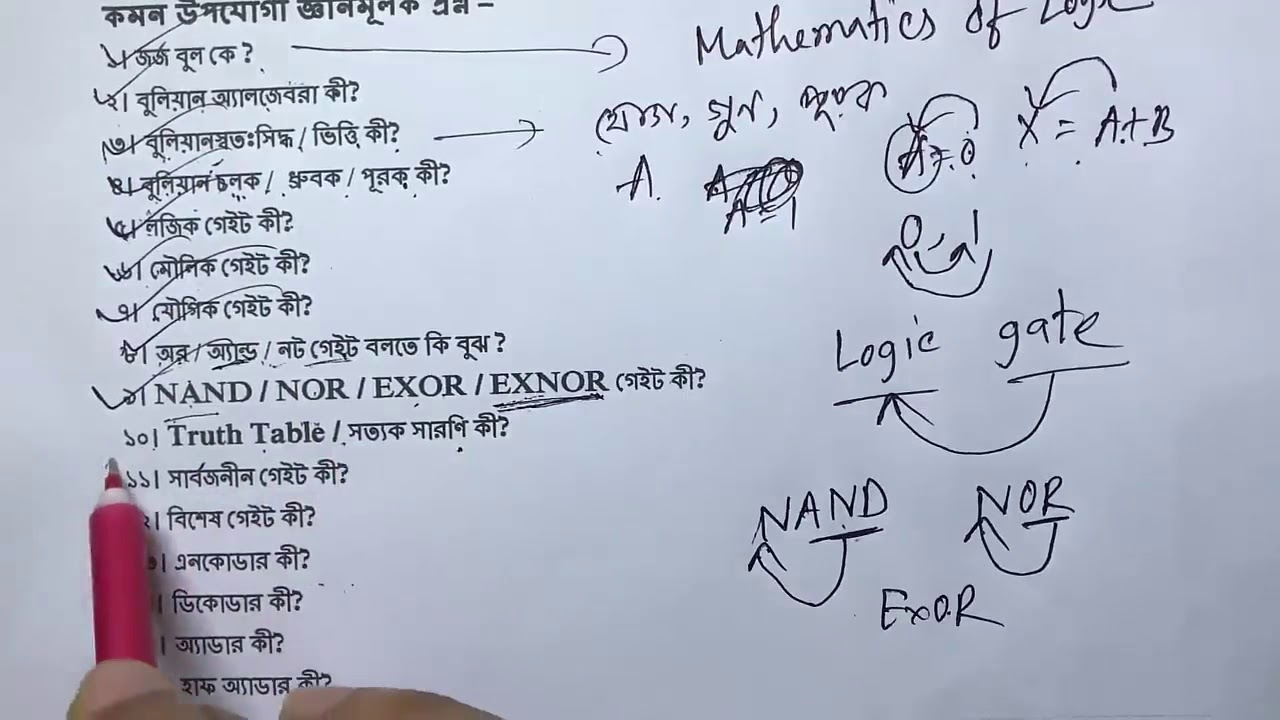 কমন উপযোগী জ্ঞানমূলক প্রশ্ন –
১। জর্জ বুল কে?
২। বুলিয়ান অ্যালজেবরা কী?
৩। বুলিয়ানস্বতঃসিদ্ধ / ভিত্তি কী?
৪। বুলিয়ান চলক / ধ্রুবক / পূরক কী?
৫। লজিক গেইট কী?
৬। মৌলিক গেইট কী?
৭। যৌগিক গেইট কী?
৮। অর / অ্যান্ড / নট গেইট বলতে কি বুঝ?
৯। NAND / NOR / EXOR / EXNOR গেইট কী?
১০। Truth Table / সত্যক সারণি কী?
১১। সার্বজনীন গেইট কী?
। বিশেষ গেইট কী?
। এনকোডার কী?
। ডিকোডার কী?
। অ্যাডার কী?
হাফ অ্যাডার কী?
Mathematics of Logic
যোগ, গুন, পূরক
A
A = 1
A = 0
X = A+B
0, 1
Logic gate
NAND NOR
ExOR